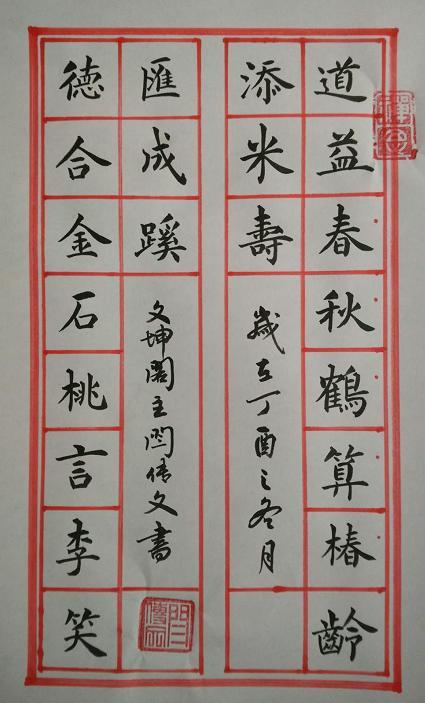 道益春秋鶴算椿齡
添米壽
歲在丁酉之冬月
德合金石桃言李笑
匯成蹊
文坤閣主閆傳文書